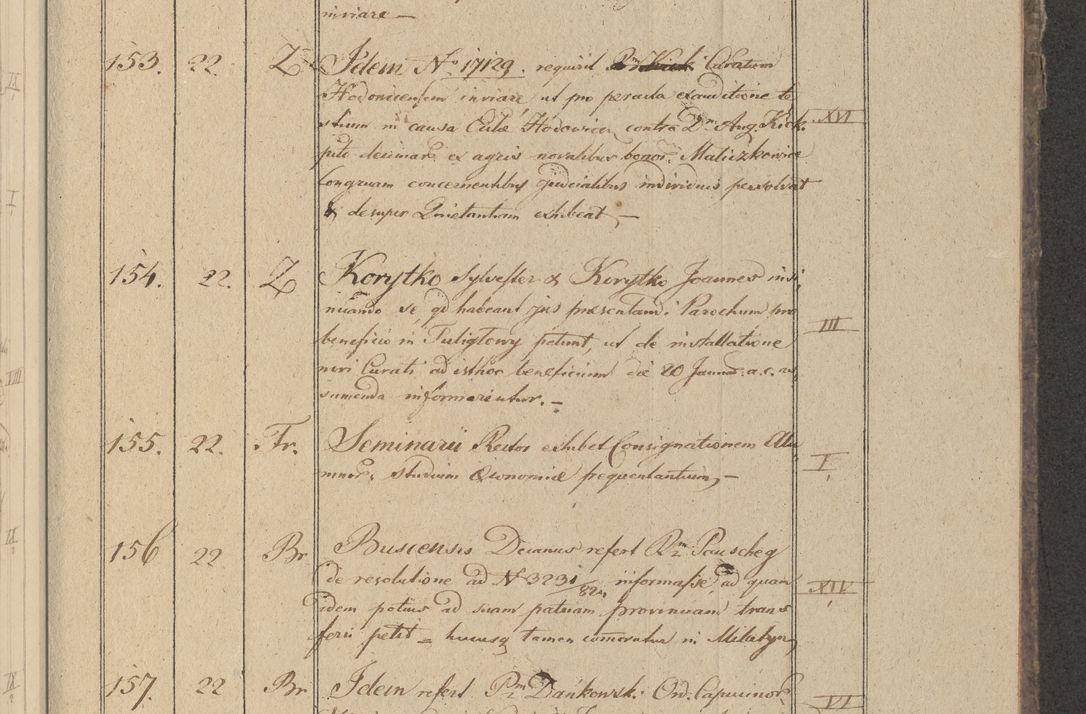 inviare —
153. 22. Z Idem No 17129. requirit Curatum XVI
Hodovicensem inviare, ut pro peracta exauditione te
stium in causa Eccl̃æ Hodovicen. contra Dnm Aug. Kick.
pcto decimar. ex agris novalibus bonor. Maliczkowice
Congruam concernentibus judicialibus individuis persolvat
& desuper Quietantiam exhibeat, —
154. 22. Z Korytko Sylvester & Korytko Joannes insi III
nuando se, qd habeant jus præsentandi Parochum pro
beneficio in Tuligłowy petunt, ut de installatione
niri Curati ad isthoc beneficium die 20 Januar. a. c. as
sumenda informarentur. —
155. 22. Fr. Seminarii Rector exhibet Consignationem Alu I
mnor. studium Œconomiæ frequentantium, —
156 22 Br Buscensis Decanus refert Rm Pauscheg XIV
de resolutione ad N 3231/824 informasse, ad quam
idem potius ad suam patriam provinciam trans
ferri petit = hucusq tamen comoratur in Milatyn,
157. 22 Br Idem refert Rm Dankowski Ord. Capucinor. VI